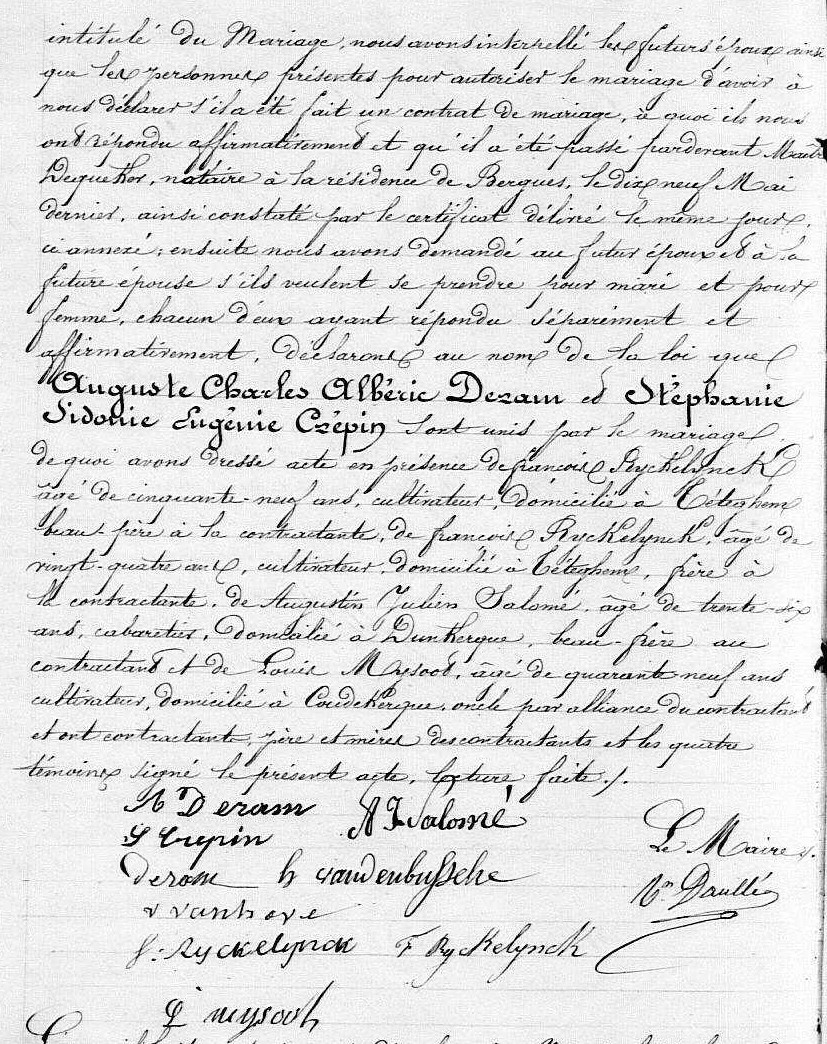 intitulé du Mariage, nous avons interpellé les futurs époux ainsi
que les personnes présentes pour autoriser le mariage d'avoir à
nous déclarer s'il a été fait un contrat de mariage, à quoi ils nous
ont répondu affirmativement et qu'il a été passé pardevant Maître
Dequeker, notaire à la résidence de Bergues, le dix neuf Mai
dernier, ainsi constaté par le certificat délivré le même jour,
ci annexé; ensuite nous avons demandé au futur époux et à la
future épouse s'ils veulent se prendre pour mari et pour
femme, chacun d'eux ayant répondu séparément et
affirmativement, déclarons au nom de la loi que
Auguste Charles Albéric Deram et Stéphanie
Sidonie Eugénie Crépin sont unis par le mariage,
de quoi avons dressé acte en présence de françois Ryckelynck
âgé de cinquante-neuf ans, cultivateur, domicilié à Téteghem
beau-père à la contractante, de françois Ryckelynck, âgé de
vingt-quatre ans, cultivateur, domicilié à Téteghem, frère à
la contractante, de Augustin Julien Salomé, âgé de trente-six
ans, cabaretier, domicilié à Dunkerque, beau-frère au
contractant et de Louis Mysoot, âgé de quarante neuf ans
cultivateur, domicilié à Coudekerque, oncle par alliance du contractant
et ont contractante, père et mères des contractants et les quatre
témoins signé le présent acte, lecture faite ./.
A Deram
A J Salomé
S Crepin
Le Maire
deram h vandenbussche
Vor Daullé
v vanhove
f. Ryckelynck F Ryckelynck
L mysooth